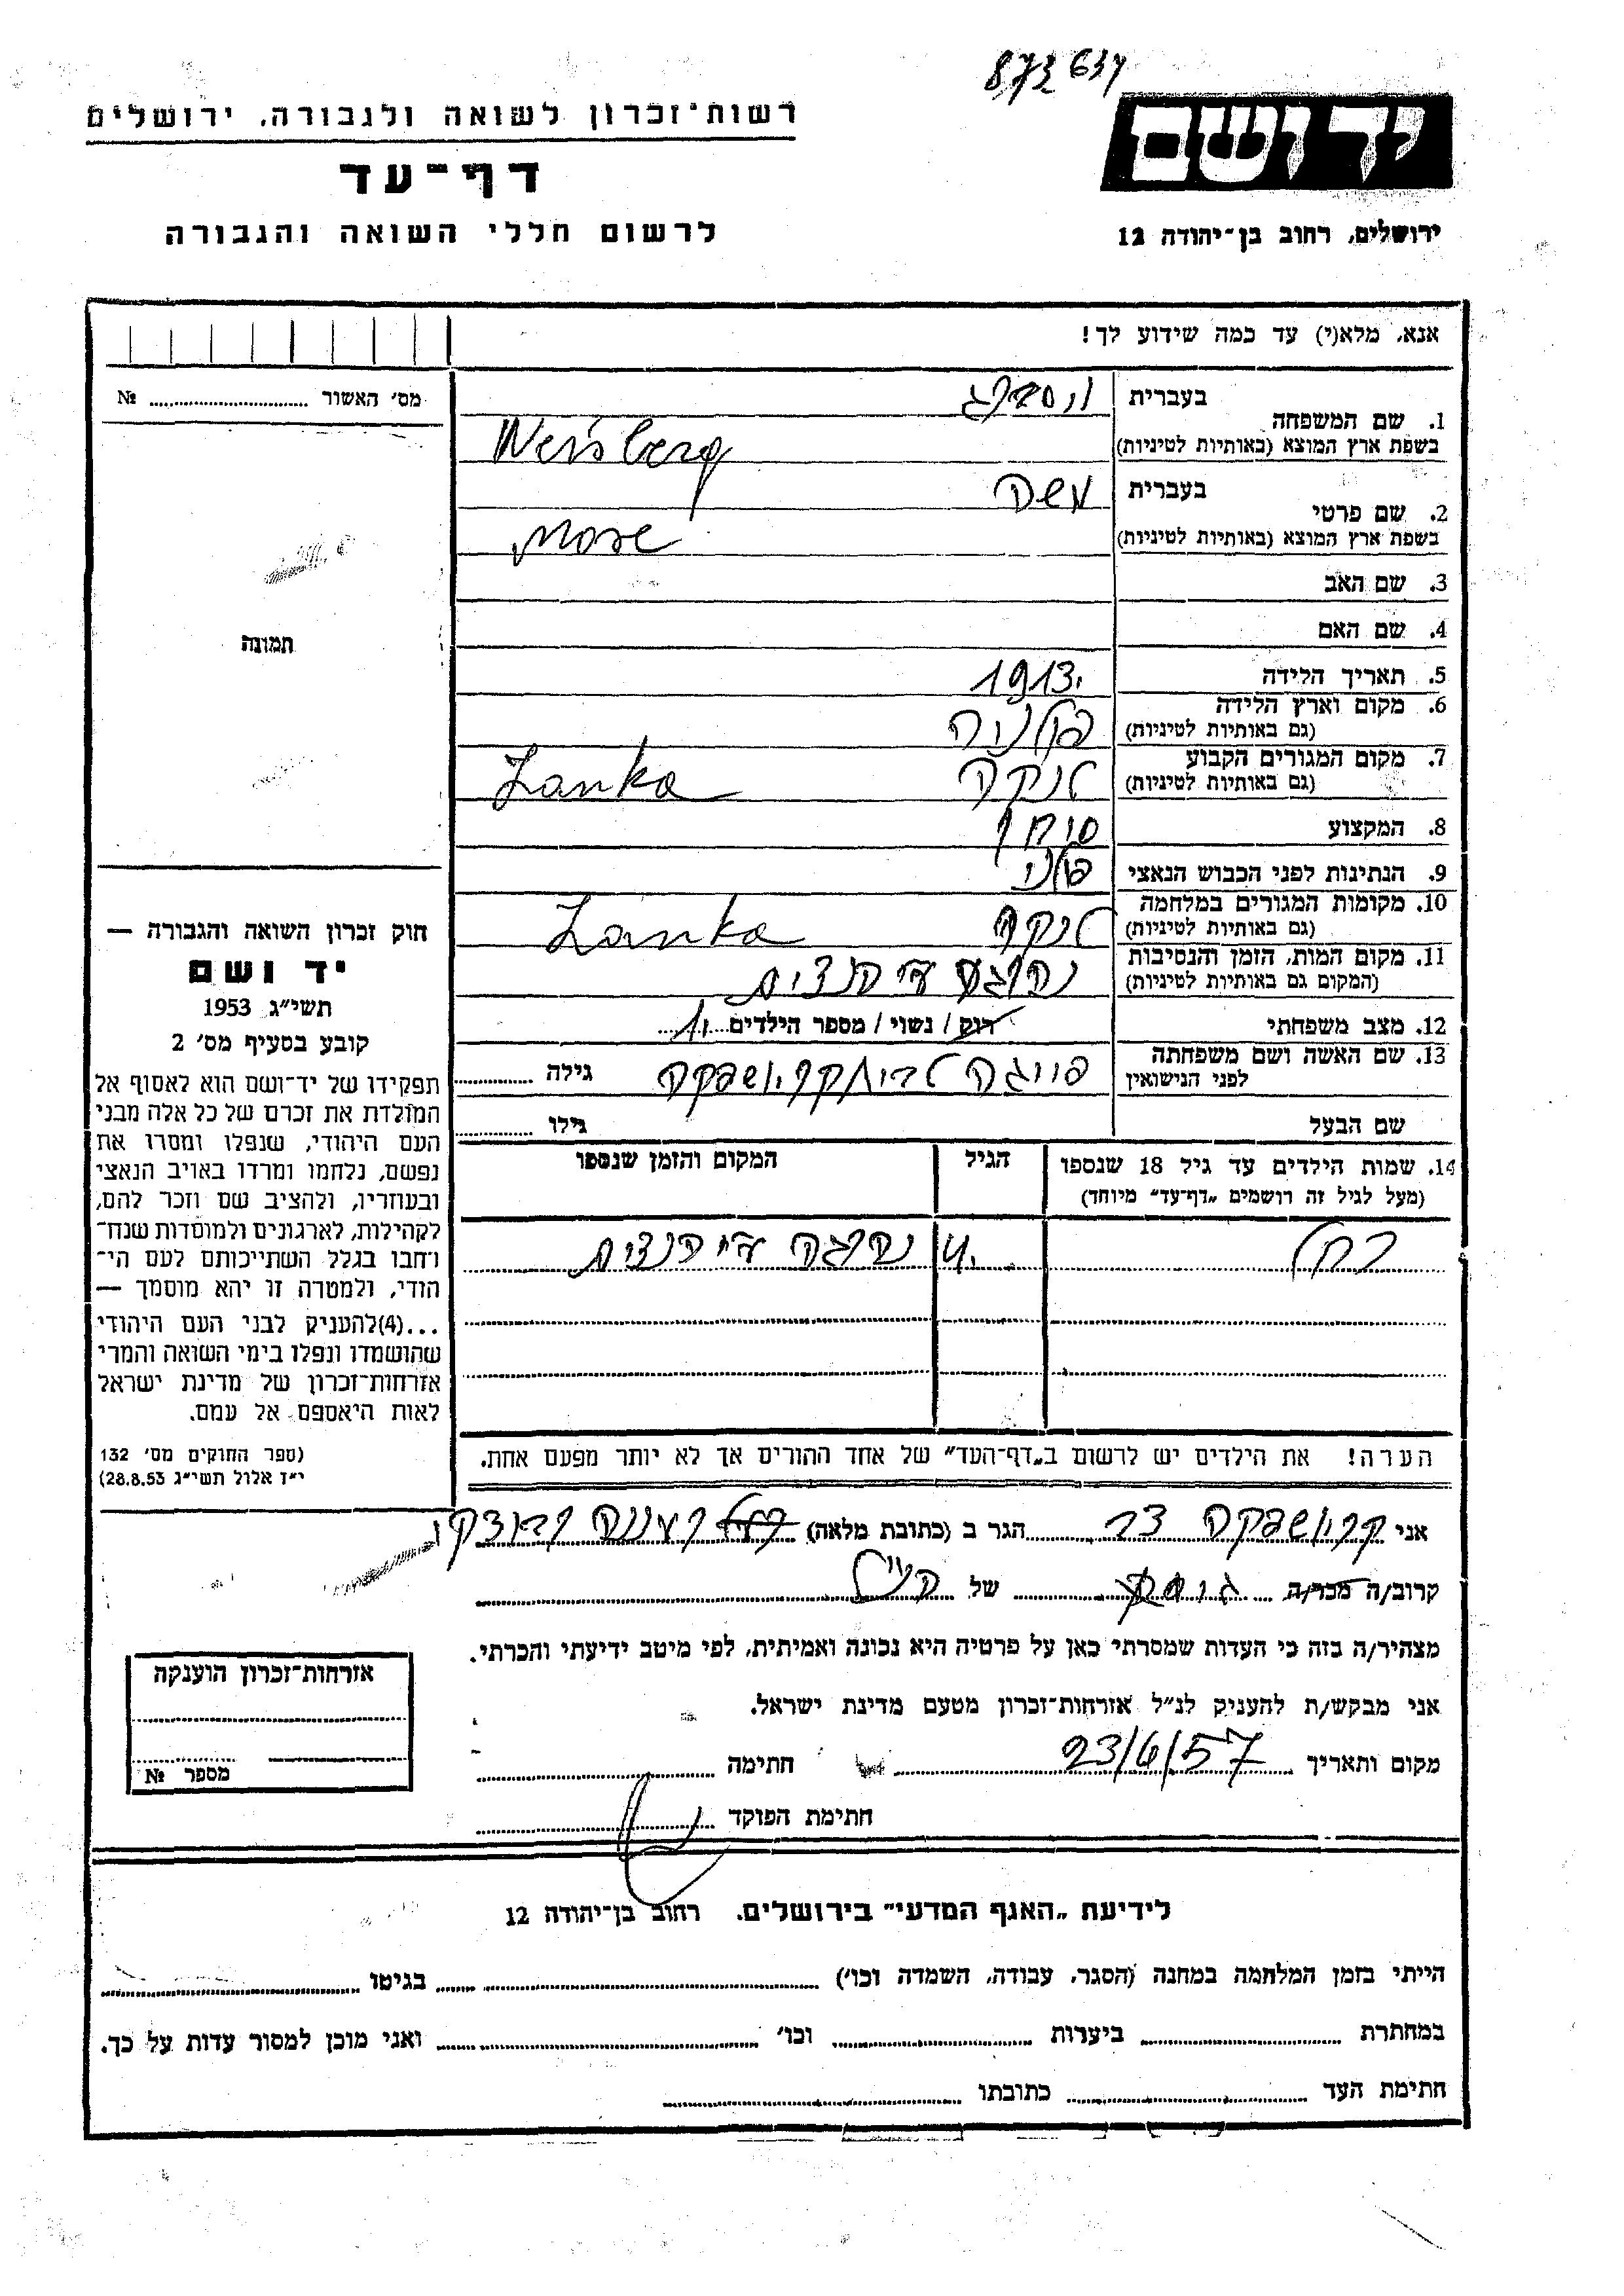 873637
רשות־זכרון לשואה ולגבורה, ירושלים
דף־עד
לרשום חללי השואה והגבורה
ידושם
ירושלים, רחוב בן־יהודה 12
אנא, מלא(י) עד כמה שידוע לך!
מס׳ האשור № 
תמונה
1. שם המשפחה בעברית
בשפת ארץ המוצא (באותיות לטיניות) Weisberg
2. שם פרטי בעברית משה
בשפת ארץ המוצא (באותיות לטיניות) Mose
3. שם האב
4. שם האם
5. תאריך הלידה 1913.
6. מקום וארץ הלידה
(גם באותיות לטיניות) פולניה
7. מקום המגורים הקבוע
(גם באותיות לטיניות) לנקה Lanka
8. המקצוע סוחר
9. הנתינות לפני הכבוש הנאצי פולני
10. מקומות המגורים במלחמה
(גם באותיות לטיניות) לנקה Lanka
11. מקום המות, הזמן והנסיבות
(המקום גם באותיות לטיניות) נהרג ע״י הנצים
12. מצב משפחתי רוק / נשוי / מספר הילדים 1.
13. שם האשה ושם משפחתה
לפני הנישואין פייגה גילה
שם הבעל גילו
14. שמות הילדים עד גיל 18 שנספו הגיל המקום והזמן שנספו
(מעל לגיל זה רושמים „דף־עד״ מיוחד)
רחל 4. נהרגה ע״י הנצים
הערה! את הילדים יש לרשום ב„דף־העד״ של אחד ההורים אך לא יותר מפעם אחת.
חוק זכרון השואה והגבורה —
יד ושם
תשי״ג 1953
קובע בסעיף מס׳ 2
תפקידו של יד־ושם הוא לאסוף אל
המולדת את זכרם של כל אלה מבני
העם היהודי, שנפלו ומסרו את
נפשם, נלחמו ומרדו באויב הנאצי
ובעוזריו, ולהציב שם וזכר להם,
לקהילות, לארגונים ולמוסדות שנח־
רחבו בגלל השתייכותם לעם הי־
הודי, ולמטרה זו יהא מוסמך —
...(4)להעניק לבני העם היהודי
שהושמדו ונפלו בימי השואה והמרי
אזרחות־זכרון של מדינת ישראל
לאות היאספם אל עמם.
(ספר החוקים מס׳ 132
י״ז אלול תשי״ג 28.8.53)
אני הגר ב (כתובת מלאה) רעננה
קרוב/ה מכר/ה של הנ״ל
מצהיר/ה בזה כי העדות שמסרתי כאן על פרטיה היא נכונה ואמיתית, לפי מיטב ידיעתי והכרתי.
אני מבקש/ת להעניק לנ״ל אזרחות־זכרון מטעם מדינת ישראל.
מקום ותאריך 23/6/57 חתימה
חתימת הפוקד
אזרחות־זכרון הוענקה
מספר №
לידיעת „האגף המדעי״ בירושלים. רחוב בן־יהודה 12
הייתי בזמן המלחמה במחנה (הסגר, עבודה, השמדה וכו׳) בגיטו
במחתרת ביערות וכו׳ ואני מוכן למסור עדות על כך.
חתימת העד כתובתו